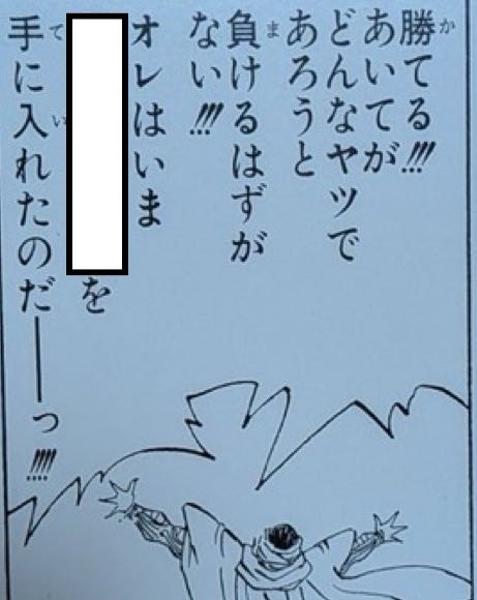 勝てる!!!
あいてが
どんなヤツで
あろうと
負けるはずが
ない!!!
オレはいま
を
手に入れたのだ――っ!!!!